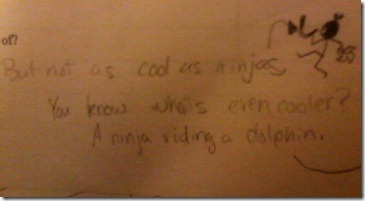 of?
But not as cool as ninjas.
You know whats even cooler?
A ninja riding a dolphin.